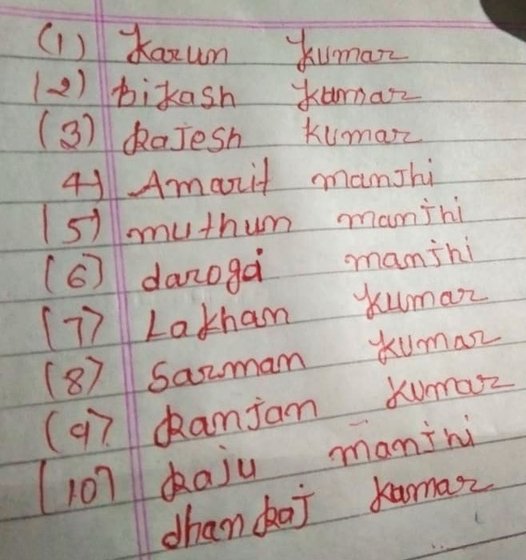 (1) Karun Kumar
(2) bikash Kumar
(3) RaJesh Kumar
4) Amarit manJhi
(5) muthun manjhi
(6) daroga manjhi
(7) Lakhan Kumar
(8) Sarman Kumar
(9) Ranjan Kumar
(10) Raju manjhi
dhanRaj Kumar